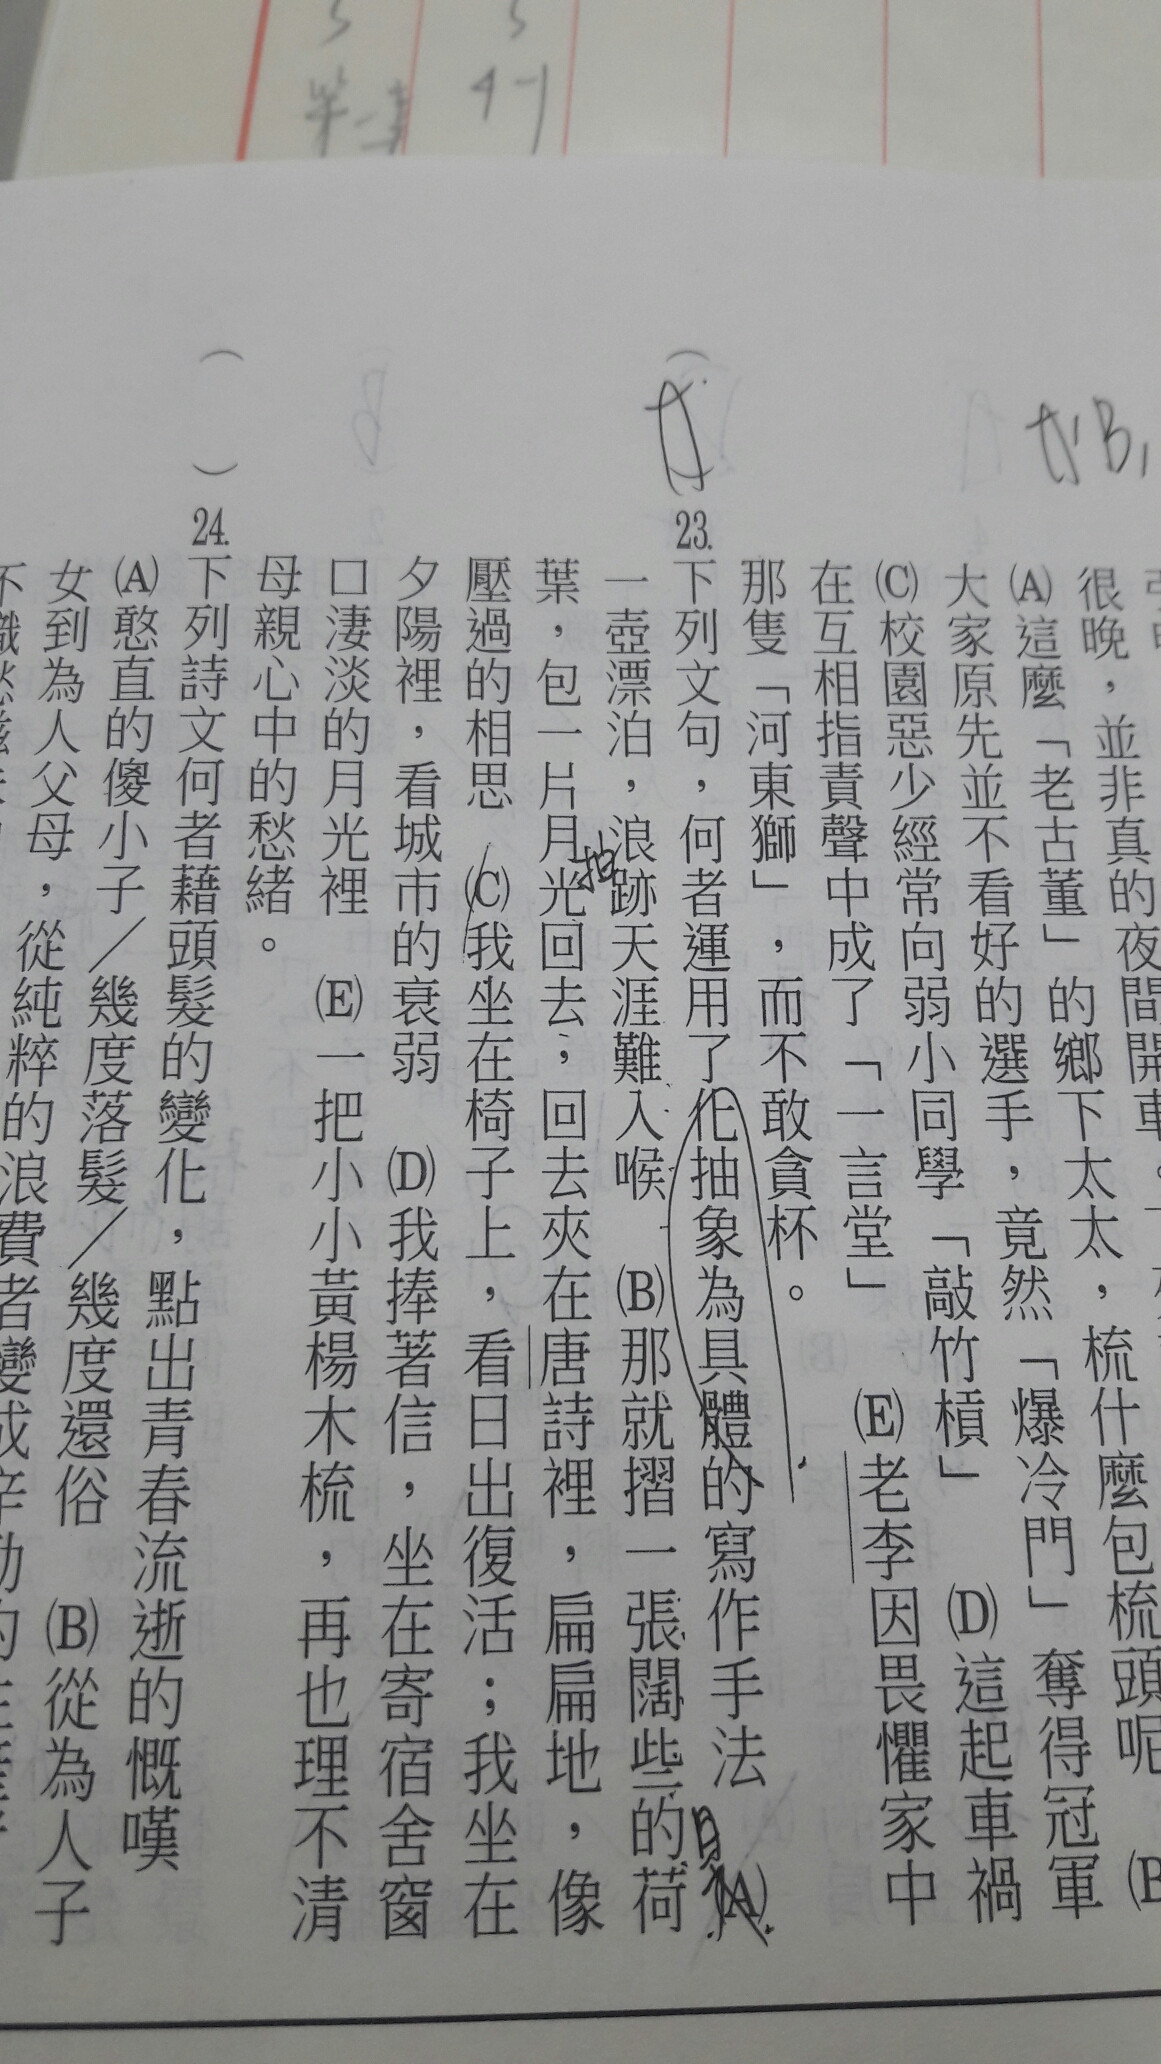 很晚，並非真的夜間開車。
(A)這麼「老古董」的鄉下太太，梳什麼包梳頭呢 (B)
大家原先並不看好的選手，竟然「爆冷門」奪得冠軍
(C)校園惡少經常向弱小同學「敲竹槓」 (D)這起車禍
在互相指責聲中成了「一言堂」 (E)老李因畏懼家中
那隻「河東獅」，而不敢貪杯。
23.下列文句，何者運用了化抽象為具體的寫作手法 (A)
一壺漂泊，浪跡天涯難入喉 (B)那就摺一張闊些的荷
葉，包一片月光回去，回去夾在唐詩裡，扁扁地，像
壓過的相思 (C)我坐在椅子上，看日出復活；我坐在
夕陽裡，看城市的衰弱 (D)我捧著信，坐在寄宿舍窗
口淒淡的月光裡 (E)一把小小黃楊木梳，再也理不清
母親心中的愁緒。
( ) 24.下列詩文何者藉頭髮的變化，點出青春流逝的慨嘆
(A)憨直的傻小子／幾度落髮／幾度還俗 (B)從為人子
女到為人父母，從純粹的浪費者變成辛勤的